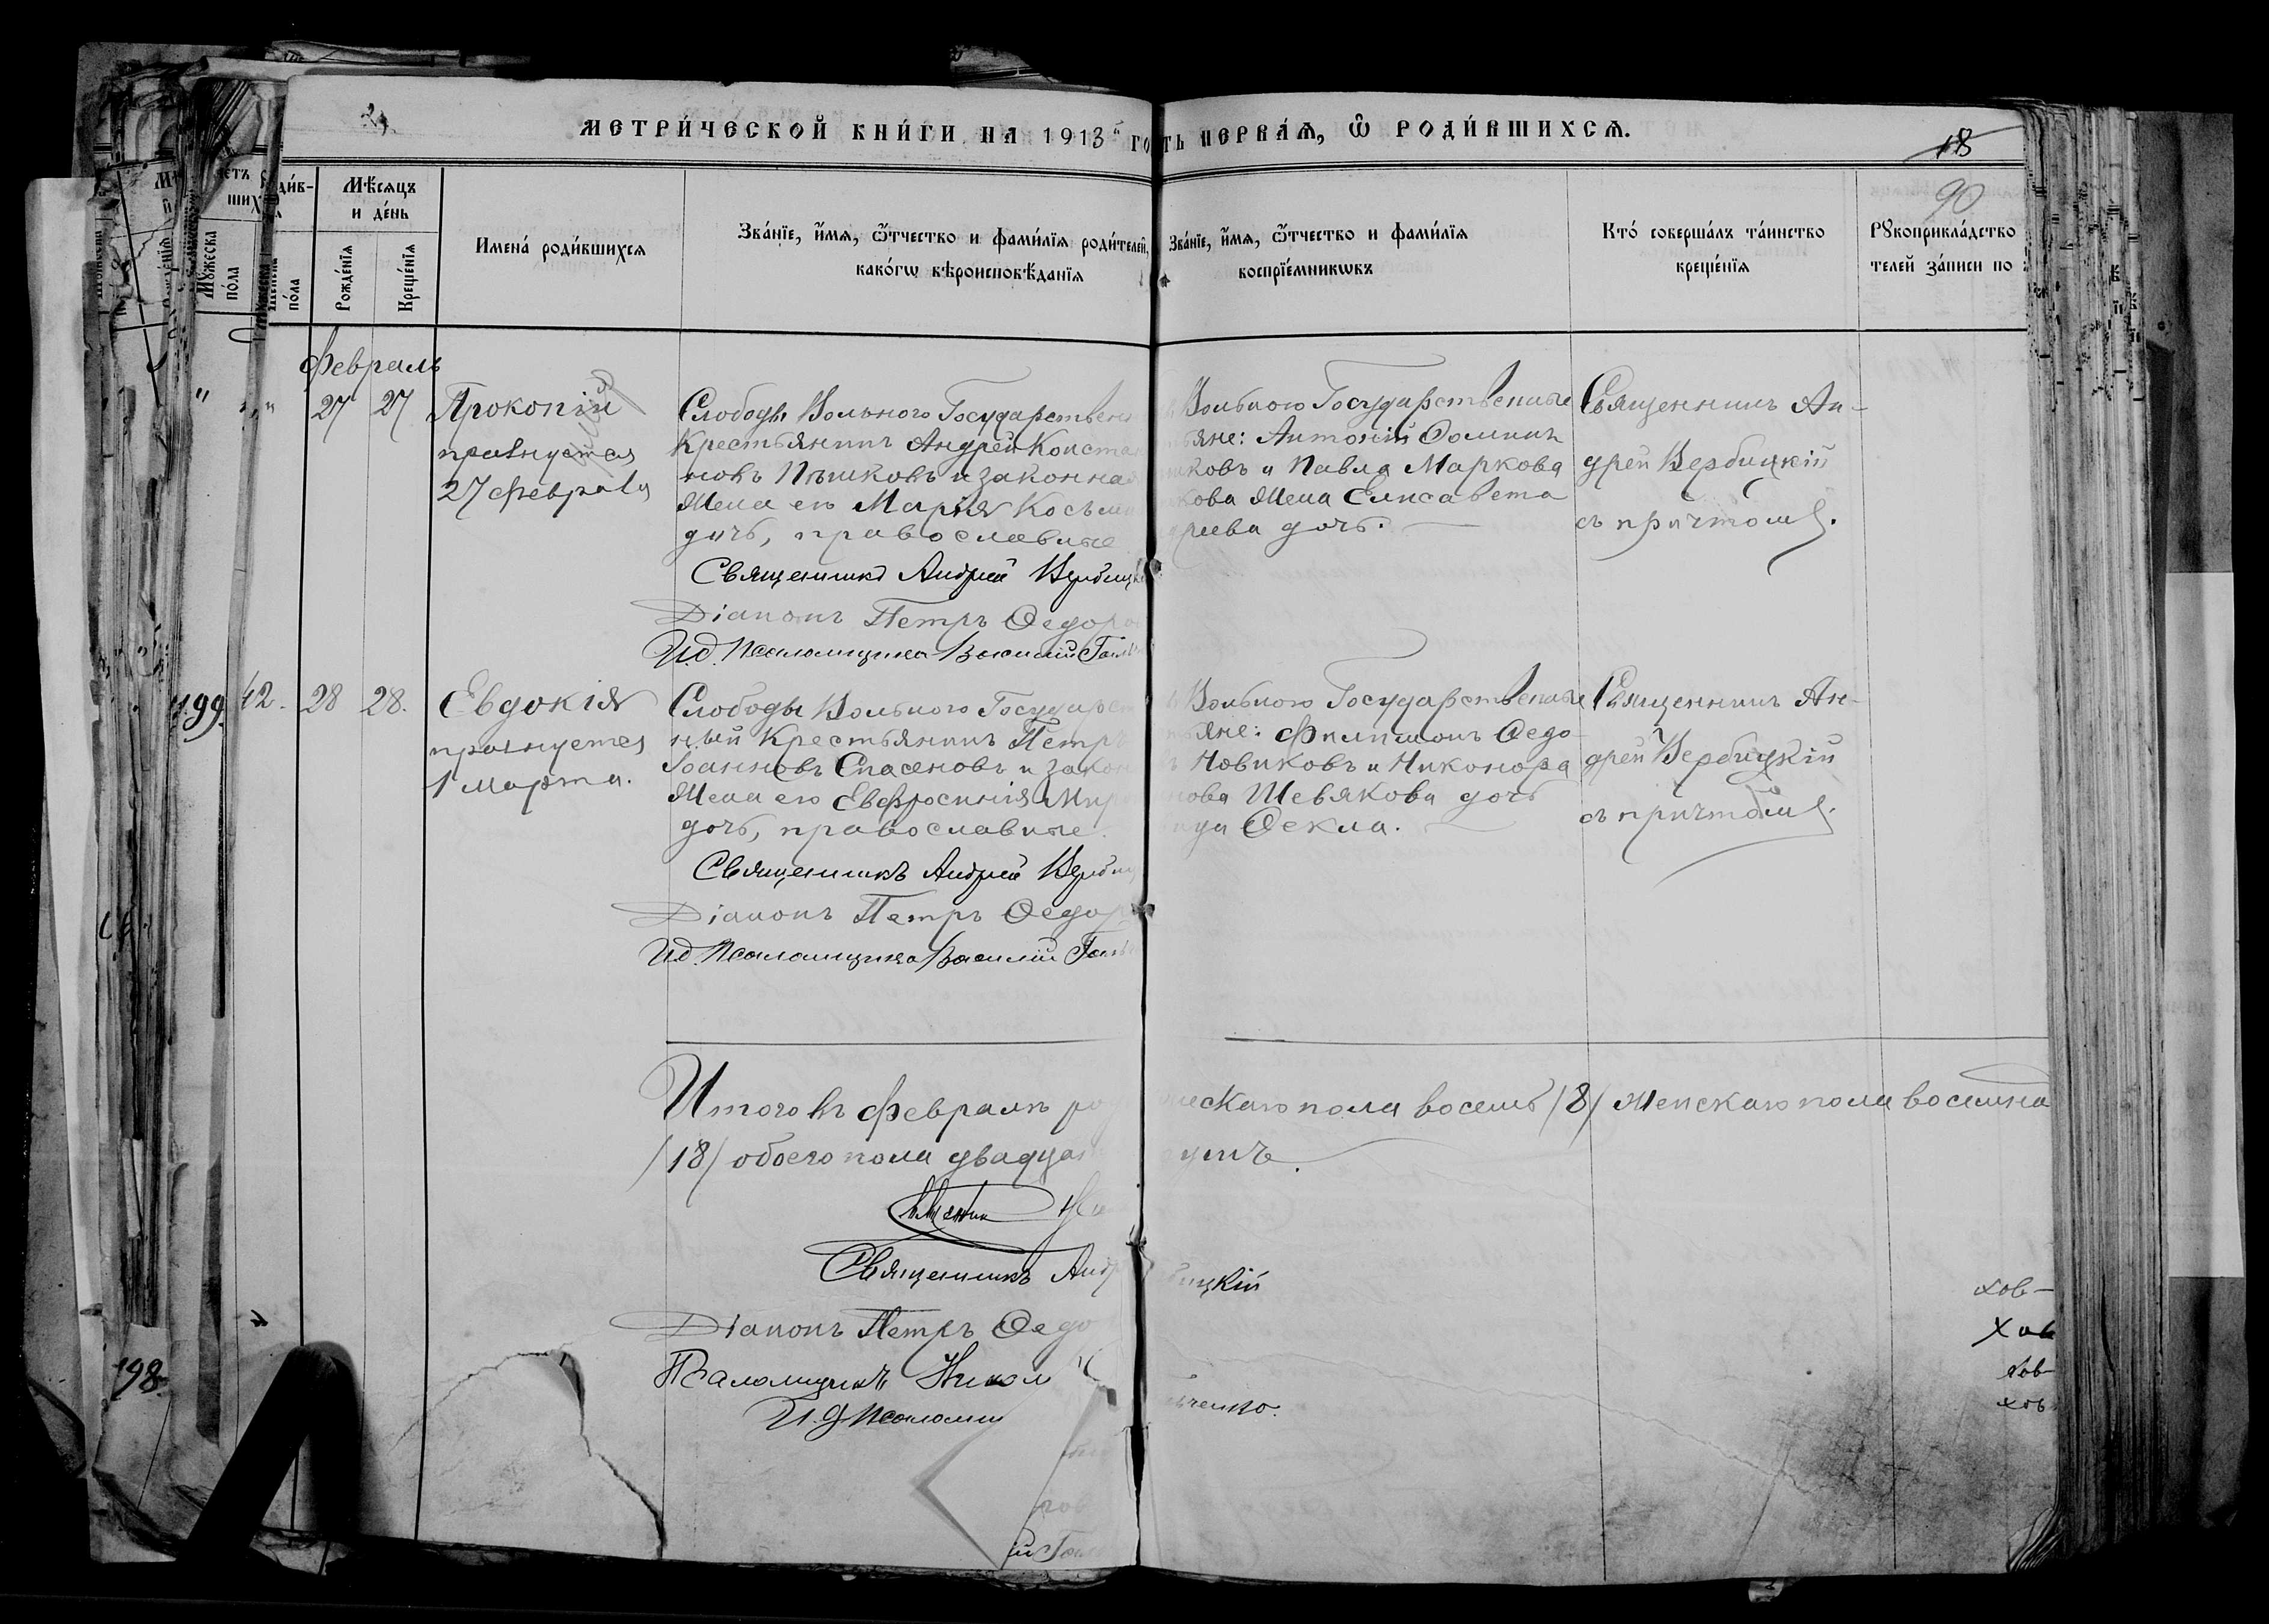 МЕТРИ́ЧЕСКОЙ КНИ́ГИ НА 1913 ГО
ТЬ ПЕРВАѦ, Ѿ РОДИ́ВШИХСѦ.
18
90
Мѣ́сѧцъ
и де́нь
Мꙋжеска
по́ла
по́ла
Рожде́нїѧ
Креще́нїѧ
Имена́ роди́вшихсѧ
Зва́нїе, и҆́мѧ, ѻ҆́тчество и фами́лїѧ роди́телей,
како́гѡ вѣроисповѣ́данїѧ
Зва́нїе, и҆́мѧ, ѻ҆́тчество и фами́лїѧ
воспрїе́мникѡвъ
Кто́ соверша́лъ та́инство
креще́нїѧ
Рꙋкоприкла́дство
телей за́писи по
Февраль
27 27
Прокопій
празнуется
27 февраля
Слободы Вольного Государствен
Крестьянинъ Андрей Конста
новъ Пѣшковъ и законная
Жена его Марія Косьм
дочь, православные
Священникъ Андрей Вербицк
Діаконъ Петръ Ѳедоро
И.д. Псаломщика Василій Галь
Вольного Государственные
яне: Антоній Ѳоминъ
ковъ и Павла Маркова
кова Жена Елисавета
дреева дочь.
Священникъ Ан-
дрей Вербицкій
съ причтомъ.
199. 42. 28 28.
Евдокія
празнуется
1 марта.
Слободы Вольного Государст
ный Крестьянинъ Петръ
Іоанновъ Спасеновъ и закон
Жена его Евфросинія Мир
дочь, православные.
Священникъ Андрей Верби
Діаконъ Петръ Ѳедор
И.д. Псаломщика Василій Галь
Вольного Государственные
яне: Филимонъ Ѳедо
Новиковъ и Никонора
нова Шевякова дочь
ица Ѳекла.
Священникъ Ан-
дрей Вербицкій
съ причтомъ.
Итого въ февралѣ ро
жескаго пола восемь /8/ Женскаго пола восемна
/18/ обоего пола двадца
Священникъ Андр
бицкій
Діаконъ Петръ Ѳедо
Псаломщикъ Никол
И.д. Псаломщ
ченко.
198
ков-
ков
ков-
ков